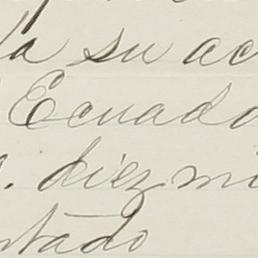 da su ac
Ecuado
. diez mi
ntado